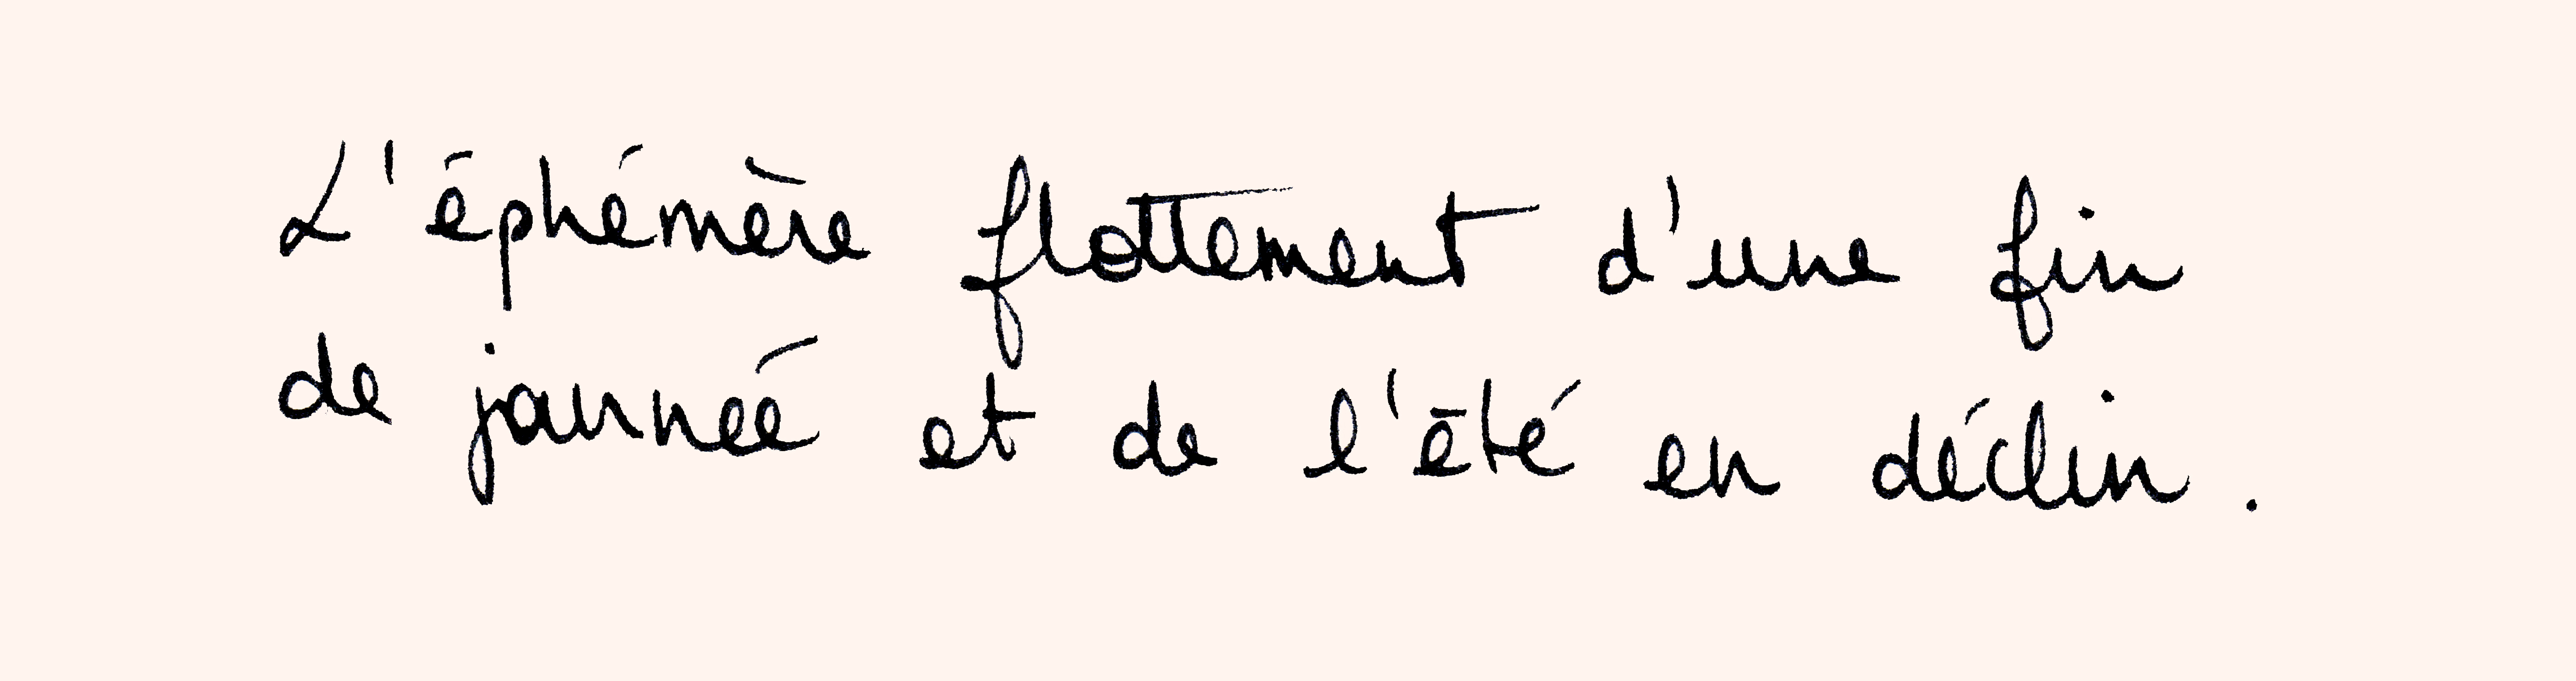 L'éphémère flottement d'une fin
de journée et de l'été en déclin.